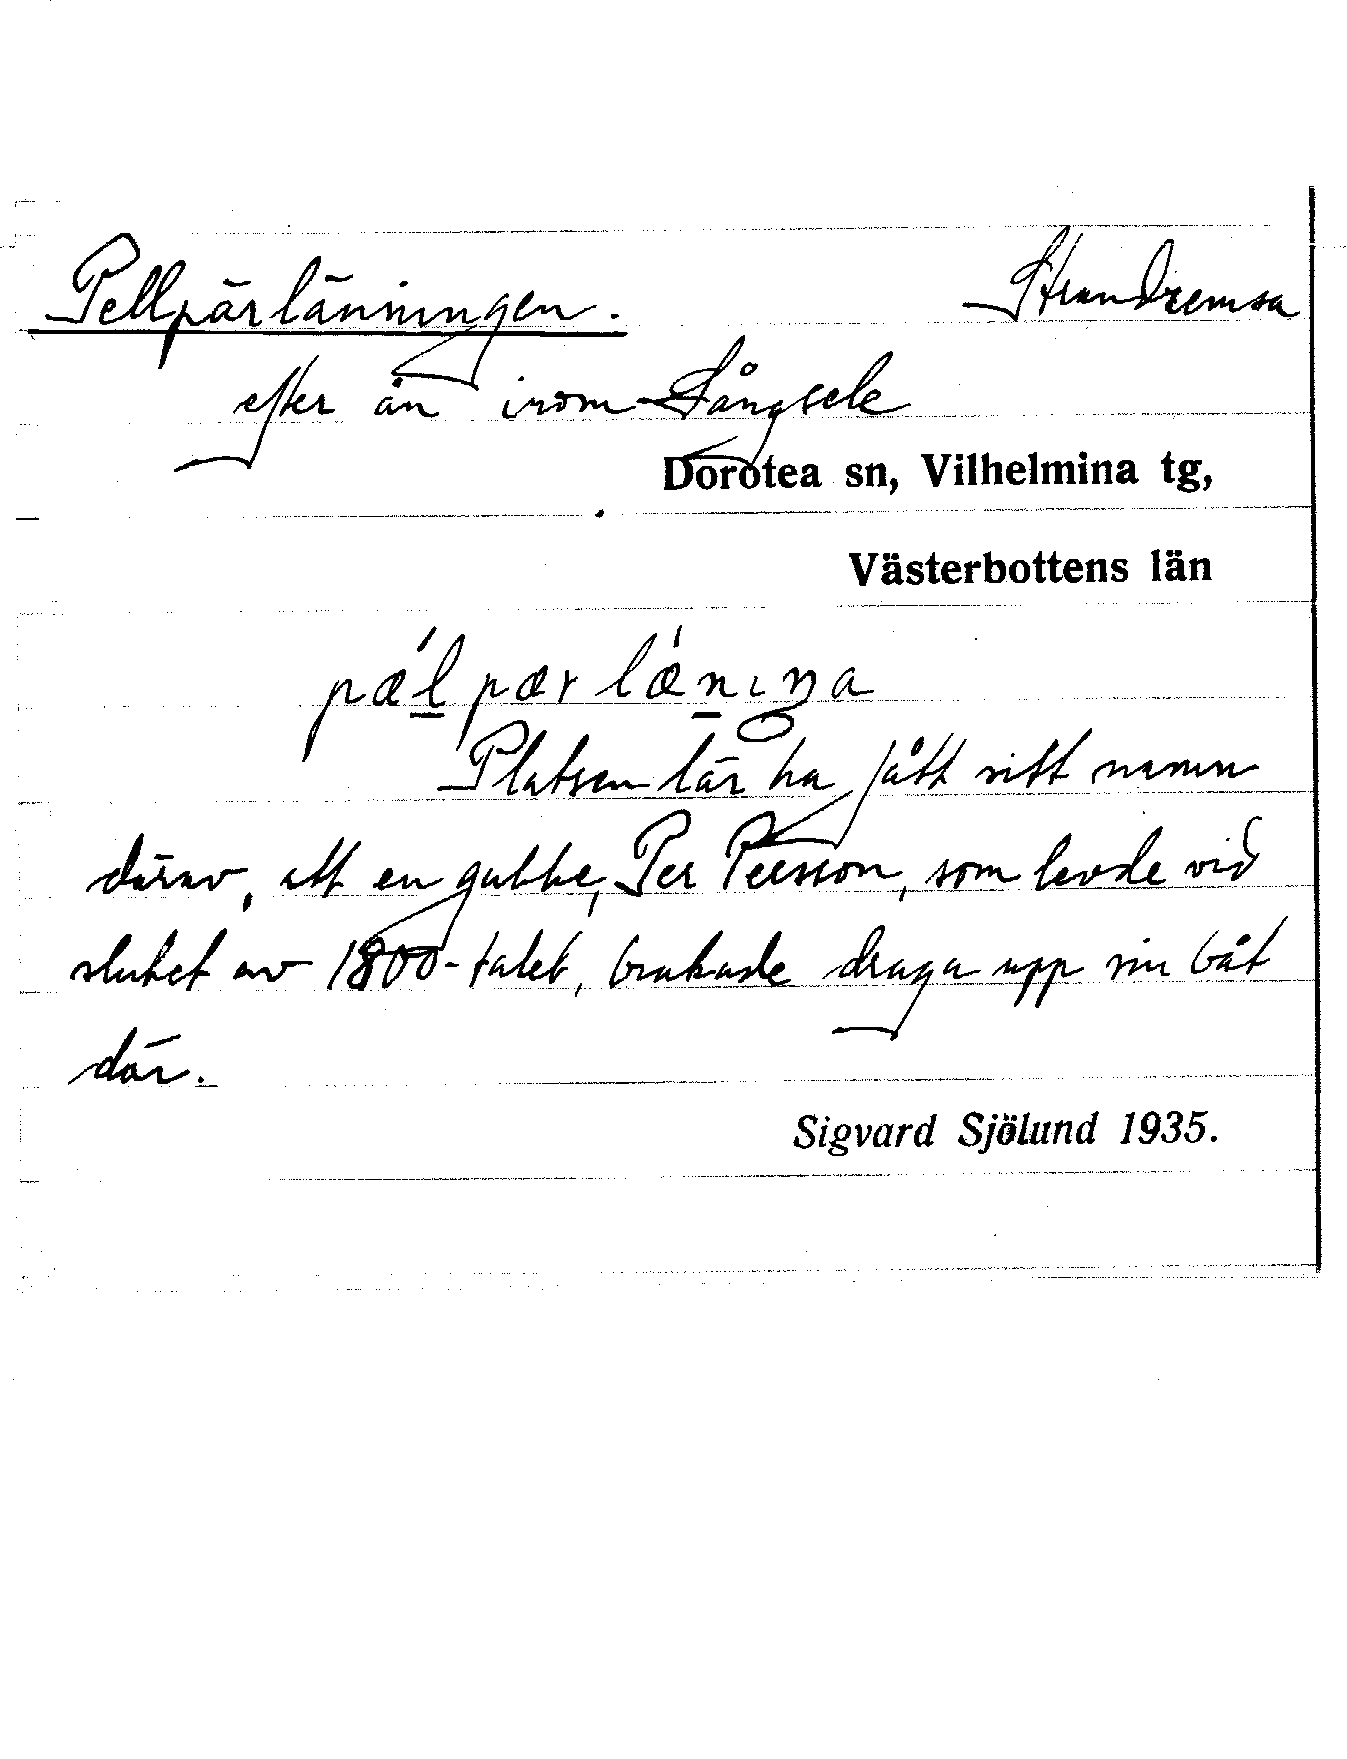 Pellpärlänningen. Strandremsa
efter ån inom Långsele
Dorotea sn, Vilhelmina tg,
Västerbottens län
pæ´l̲pærlæ´n̲ıŋa
Platsen lär ha fått sitt namn
därav, att en gubbe, Per Persson, som levde vid
slutet av 1800-talet, brukade draga upp sin båt
där.
Sigvard Sjölund 1935.